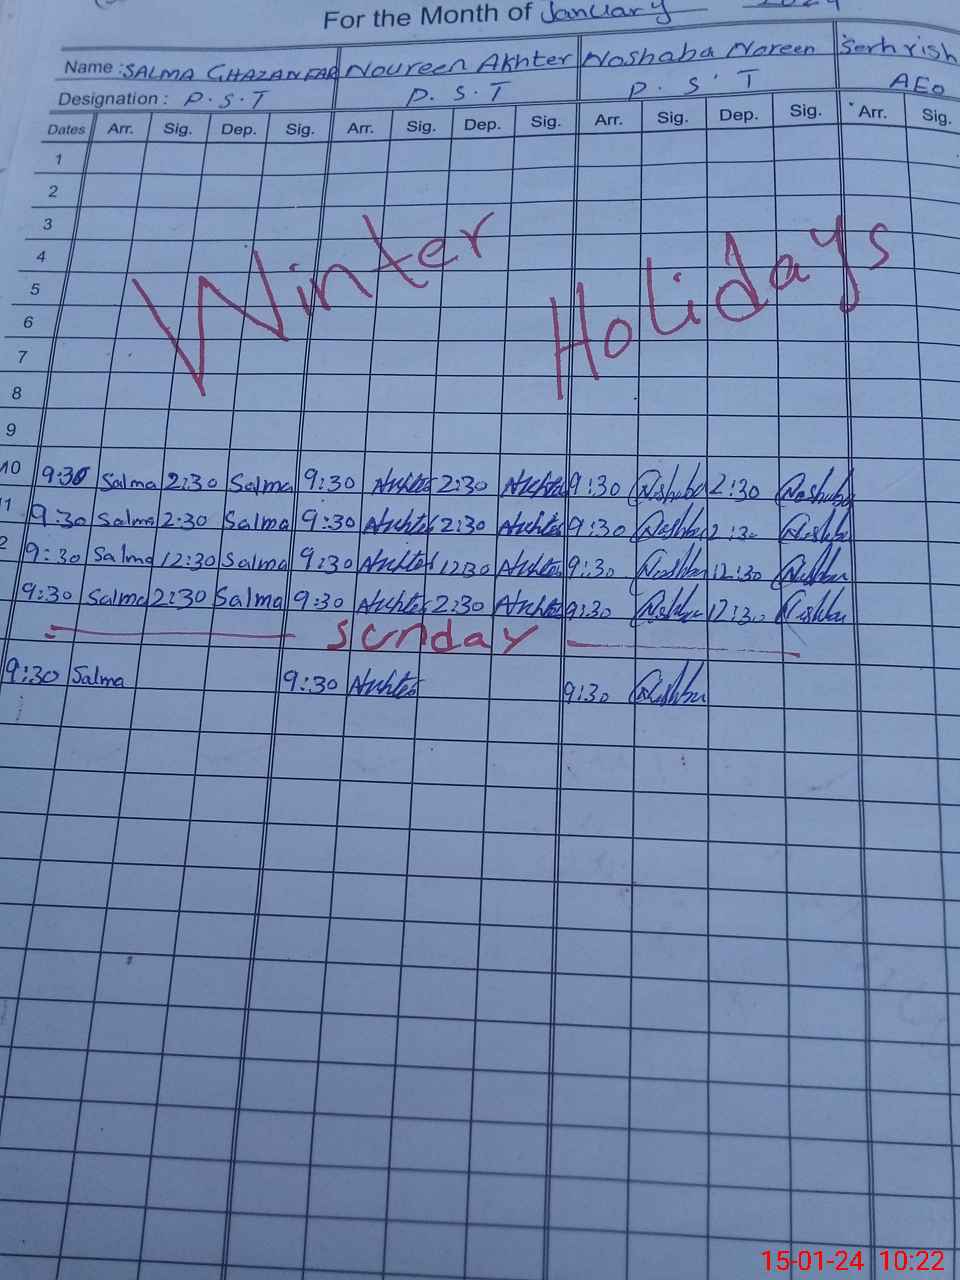 For the Month of January 2024
Name: SALMA GHAZANFAR Noureen Akhter Noshaba Noreen Sehrish
Designation: P.S.T P.S.T P.S.T AEO
Dates Arr. Sig. Dep. Sig. Arr. Sig. Dep. Sig. Arr. Sig. Dep. Sig. Arr. Sig.
1
2
3
4
5
6
7
8
Winter Holidays
9
10 9:30 Salma 2:30 Salma 9:30 Akhter 2:30 Akhter 9:30 Noshaba 2:30 Noshaba
11 9:30 Salma 2:30 Salma 9:30 Akhter 2:30 Akhter 9:30 Noshaba 2:30 Noshaba
2 9:30 Salma 12:30 Salma 9:30 Akhter 12:30 Akhter 9:30 Noshaba 12:30 Noshaba
9:30 Salma 2:30 Salma 9:30 Akhter 2:30 Akhter 9:30 Noshaba 12:30 Noshaba
Sunday
9:30 Salma 9:30 Akhter 9:30 Noshaba
15-01-24 10:22